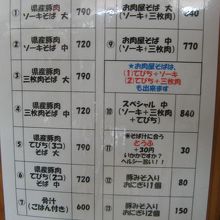 ① 県産豚肉
ソーキそば 大 790
② 県産豚肉
ソーキそば 中 720
③ 県産豚肉
三枚肉そば 大 790
④ 県産豚肉
三枚肉そば 中 720
⑤ 県産豚肉
てびち(3コ)
そば 大 790
⑥ 県産豚肉
てびち(2コ)
そば 中 720
⑦ 骨汁
(ごはん付き) 700
お肉屋そば 大
(ソーキ+三枚肉) 840
⑨ お肉屋そば 中
(ソーキ+三枚肉) 770
★お肉屋そばは、
(1)てびち+ソーキ
(2)てびち+三枚肉
も出来ます
⑩ スペシャル 中
(ソーキ+三枚肉
+てびち) 840
⑪ ★そば汁に合う
とうふ
+30円
いかがですか？
ヘルシー旨い!! 30
⑫ 豚みそ入り
おにぎり1個 80
⑬ 豚みそ入り
おにぎり2個 150